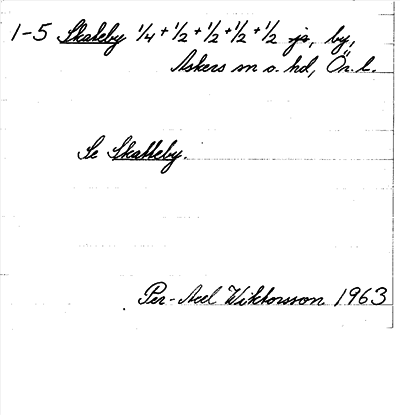 1-5 Skateby 1/4 + 1/2 + 1/2 + 1/2 + 1/2 js, by,
Askers sn o. hd, Ör. l.
Se Skatteby.
Per-Axel Wiktorsson 1963